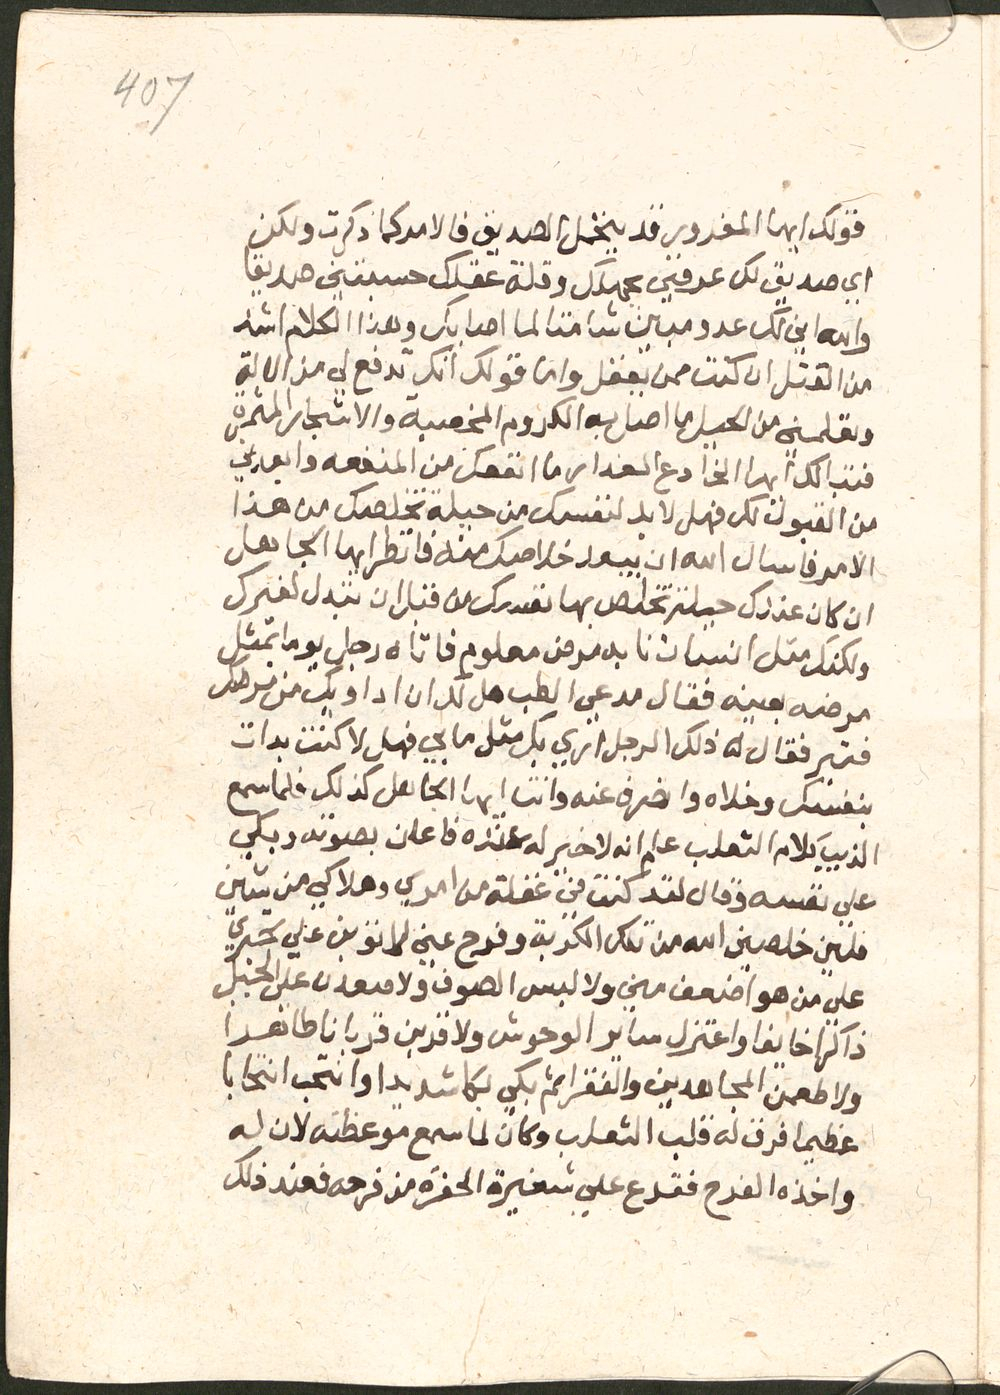 407
قولك ايها المغدور قد يتخيل الصديق فالامر كما ذكرت ولكن
اي صديق لك عرفتني بجهلك وقلة عقلك حسبتني صديقا
والله اني لك عدو مبين شامتا لما اصابك وهذا الكلام اشد
من القتل ان كنت ممن يعقل واما قولك انك تدفع لي من الاله
وتعلمني من الحيل ما اصل به الكروم المخصبة والاشجار المثمرة
فتبا لك ايها الخادع الغدار ما انفعك من المنفعه وابعدني
من القبول لك فهل لا بد لنفسك من حيلة تخلصك من هذا
الامر فاسال الله ان يبعد خلاصك منه فانظر ايها الجاهل
ان كان عندك حيلة تخلص بها نفسك من قبل ان تبدل لغيرك
ولكنك مثل انسان نابه مرض معلوم فاتاه رجل يوما بمثل
مرضه بعينه فقال مدعي الطب هل لك ان اداويك من مرضك
فتبر فقال له ذلك الرجل اري بك مثل ما بي فهل لا كنت بدات
بنفسك وخلاه وانصرف عنه وانت ايها الجاهل كذلك فلما سمع
الذيب كلام الثعلب علم انه لا خير له عنده فاعلن بصوته وبكي
علي نفسه وقال لقد كنت في غفلة من امري وهلاكي من شاني
فلين خلصني الله من تلك الكربة وفرج عني لاتوبن علي تجبري
علي من هو اضعف مني ولالبس الصوف ولاصعدن علي الجبل
ذاكرا خايفا واعتزل ساير الوحوش ولاقربن قربانا طاهرا
ولاطعمن المجاهدين والفقرا ثم بكي بكا شديدا وانتحب انتحابا
عظيما فرق له قلب الثعلب وكان لما سمع موعظته لان له
واخذه الفرح فقدع علي شفيرة الحفره من فرحه فعند ذلك